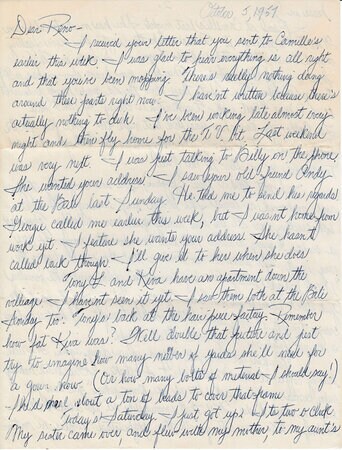 5, 1957
Dear Reno -
I received your letter that you sent to Camille's
earlier this week - I was glad to hear everything is all right
and that you've been mopping. There's really nothing doing
around these parts right now. I haven't written because there's
actually nothing to dish. I've been working late almost every
night and then fly home for the T.V. bit. Last weekend
was very neft. I was just talking to Billy on the phone
She wanted your address. I saw your old friend Andy
at the last Sunday. He told me to send his regards
Georgie called me earlier this week, but I wasn't home from
work yet. I figure she wants your address. She hasn't
called back though - I'll give it to her when she does
Tony L and Kiva have an apartment down the
village I haven't seen it yet. I saw them both at the
Sunday too. Tony's back at the hair piece factory. Remember
how fat Kiva was? Well double that picture and just
try to imagine how many of she'll need for
a gown now. (Or how many bolts of material I should say!)
about a ton of beads to cover that frame
Today's Saturday - I just got up - It's two o'clock
My sister came over, and flew with my mother to my aunt's